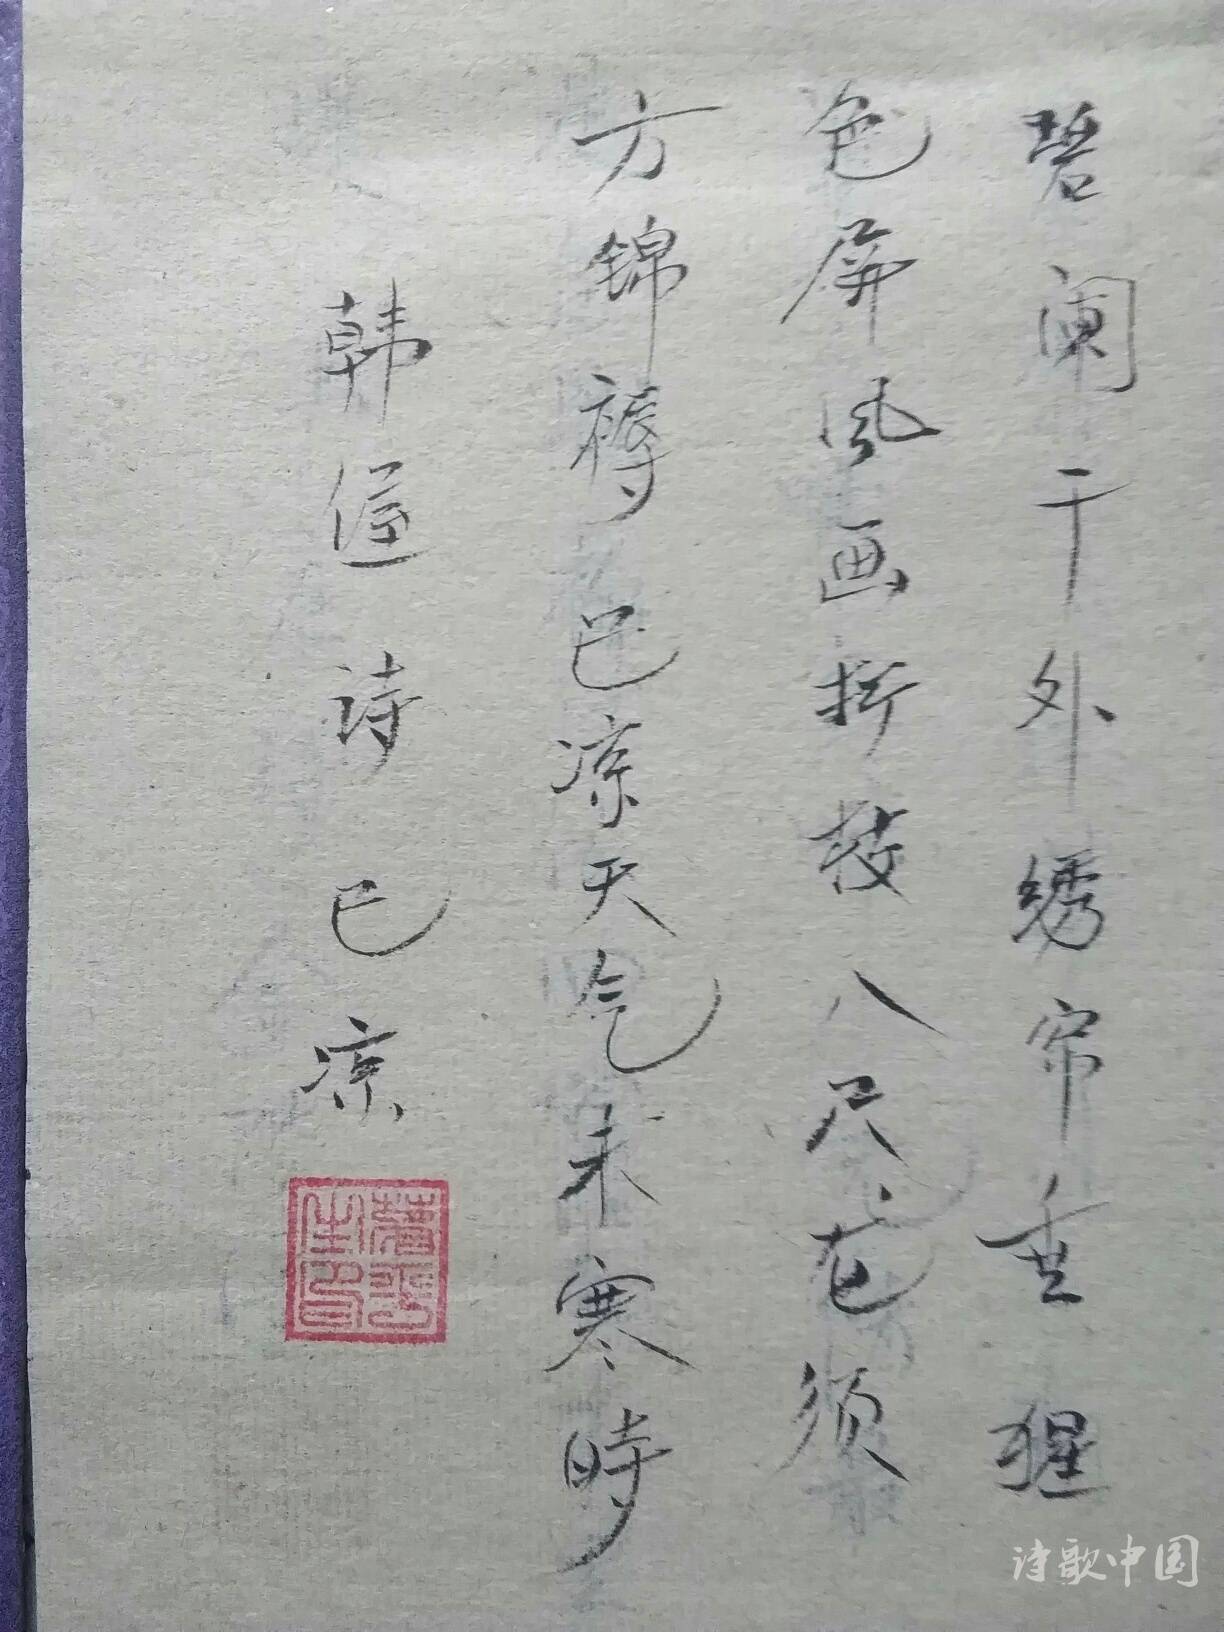 碧阑干外绣帘垂猩
色屏风画折枝八尺龙须
方锦褥已凉天气未寒時
韩偓诗已凉
诗歌中国